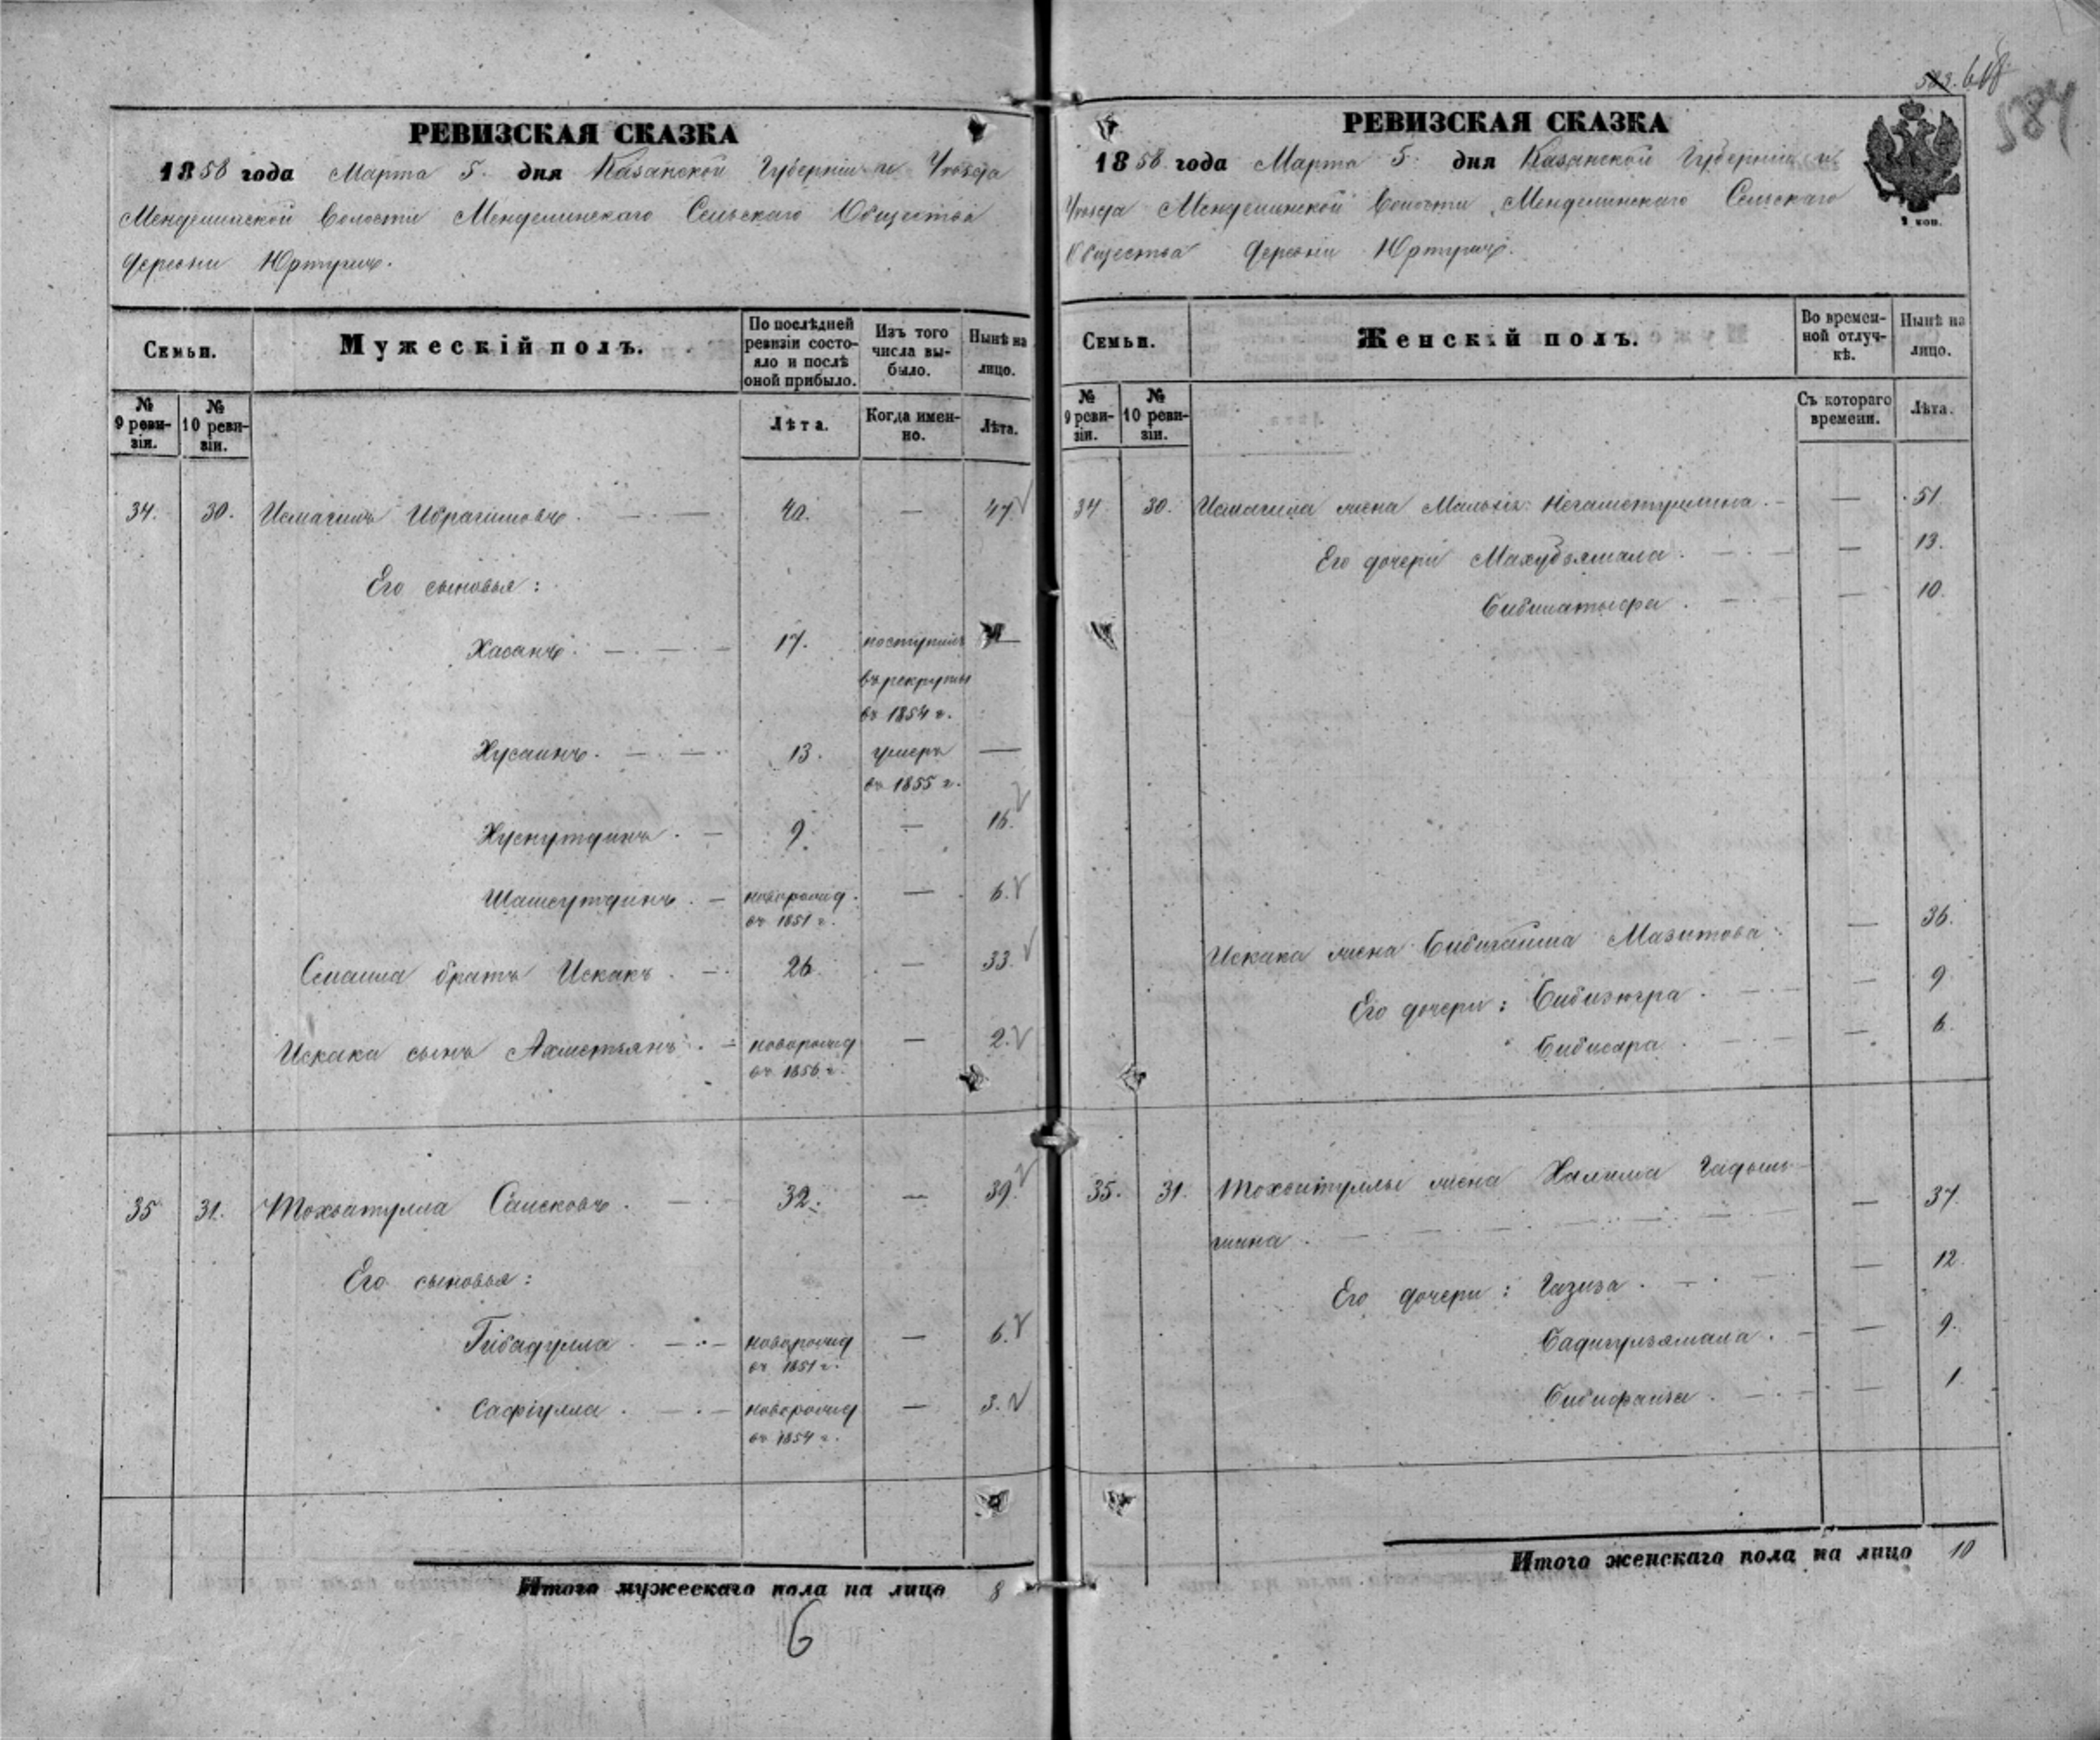 РЕВИЗСКАЯ СКАЗКА
1858 года Марта 5. дня Казанской Губерніи и Уѣзда
Менделинской Волости Менделинскаго Сельскаго Общества
деревни Юртушъ.
Семьи.
Мужескій полъ.
По послѣдней ревизіи состояло и послѣ оной прибыло.
Изъ того числа выбыло.
Нынѣ на лицо.
№ 9 ревизіи.
№ 10 ревизіи.
Лѣта.
Когда именно.
Лѣта.
34. 30. Исмагилъ Ибрагимовъ. 40. — 47.
Его сыновья:
Хасанъ. 17. поступилъ —
въ рекруты
въ 1854 г.
Хусаинъ. 13. умеръ —
въ 1855 г.
Хуснутдинъ. 9. — 16.
Шамсутдинъ. новорожд. — 6.
въ 1851 г.
братъ Искакъ. 26. — 33.
Искака сынъ Ахметьянъ. новорожд — 2.
въ 1856 г.
35 31. Мохватулла 32. — 39.
Его сыновья:
Гибадулла. новорожд — 6.
въ 1851 г.
Сафіулла. новорожд — 3.
въ 1854 г.
Итого мужескаго пола на лицо 8
6
583. 618.
584
РЕВИЗСКАЯ СКАЗКА
1858 года Марта 5. дня Казанской Губерніи и
Уѣзда Менделинской Волости Менделинскаго Сельскаго
Общества деревни Юртушъ.
2 коп.
Семьи.
Женскій полъ.
Во временной отлучкѣ.
Нынѣ на лицо.
№ 9 ревизіи.
№ 10 ревизіи.
Съ котораго времени.
Лѣта.
34. 30. Исмагила жена Негаметуллина. — 51.
Его дочери Махубзямала. — 13.
— 10.
Искака жена Мазитова — 36.
Его дочери: Бибизюгра. — 9
Бибисара. — 6.
35. 31. Мохватуллы жена Халима
— 37.
Его дочери: Газиза. — 12.
— 9.
Бибифаиза. — 1.
Итого женскаго пола на лицо 10